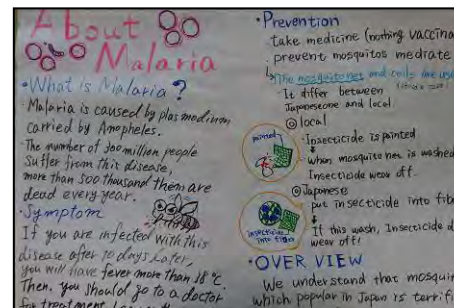 About
Malaria
・What is Malaria?
・Malaria is caused by plasmodium
carried by Anopheles.
・The number of 300 million people
suffer from this disease,
more than 500 thousand them are
dead every year.
・Symptom
If you are infected with this
disease after 10 days later,
you will have fever more than 38 ℃
Then, you should go to a doctor
for treatment.
・Prevention
take medicine (nothing vaccina
prevent mosquitos mediate
The mosquito net and coils are
It differ between
Japanese one and local
◎local
painted
・Insecticide is painted
when mosquito net is washed
Insecticide wear off.
◎Japanese
put insecticide into fib
insecticide
into fiber
If this wash, Insecticide d
wear off!
・OVER VIEW
We understand that mosqui
which popular in Japan is terrif